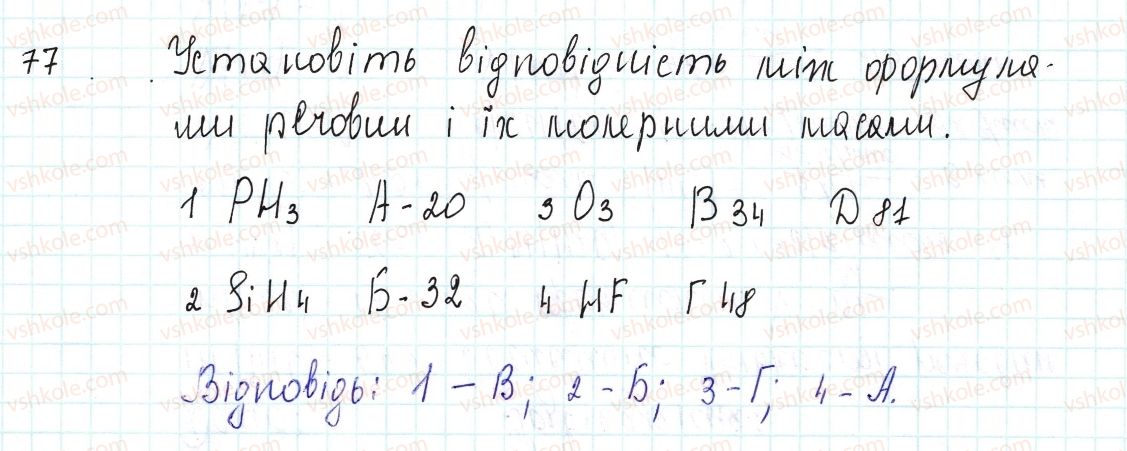 77 Установіть відповідність між формула-
ми речовин і їх молярними масами.
1 PH3 А - 20 3 O3 В 34 Д 81
2 SiH4 Б - 32 4 HF Г 48
Відповідь: 1 – В; 2 - Б; 3 - Г; 4 - А.